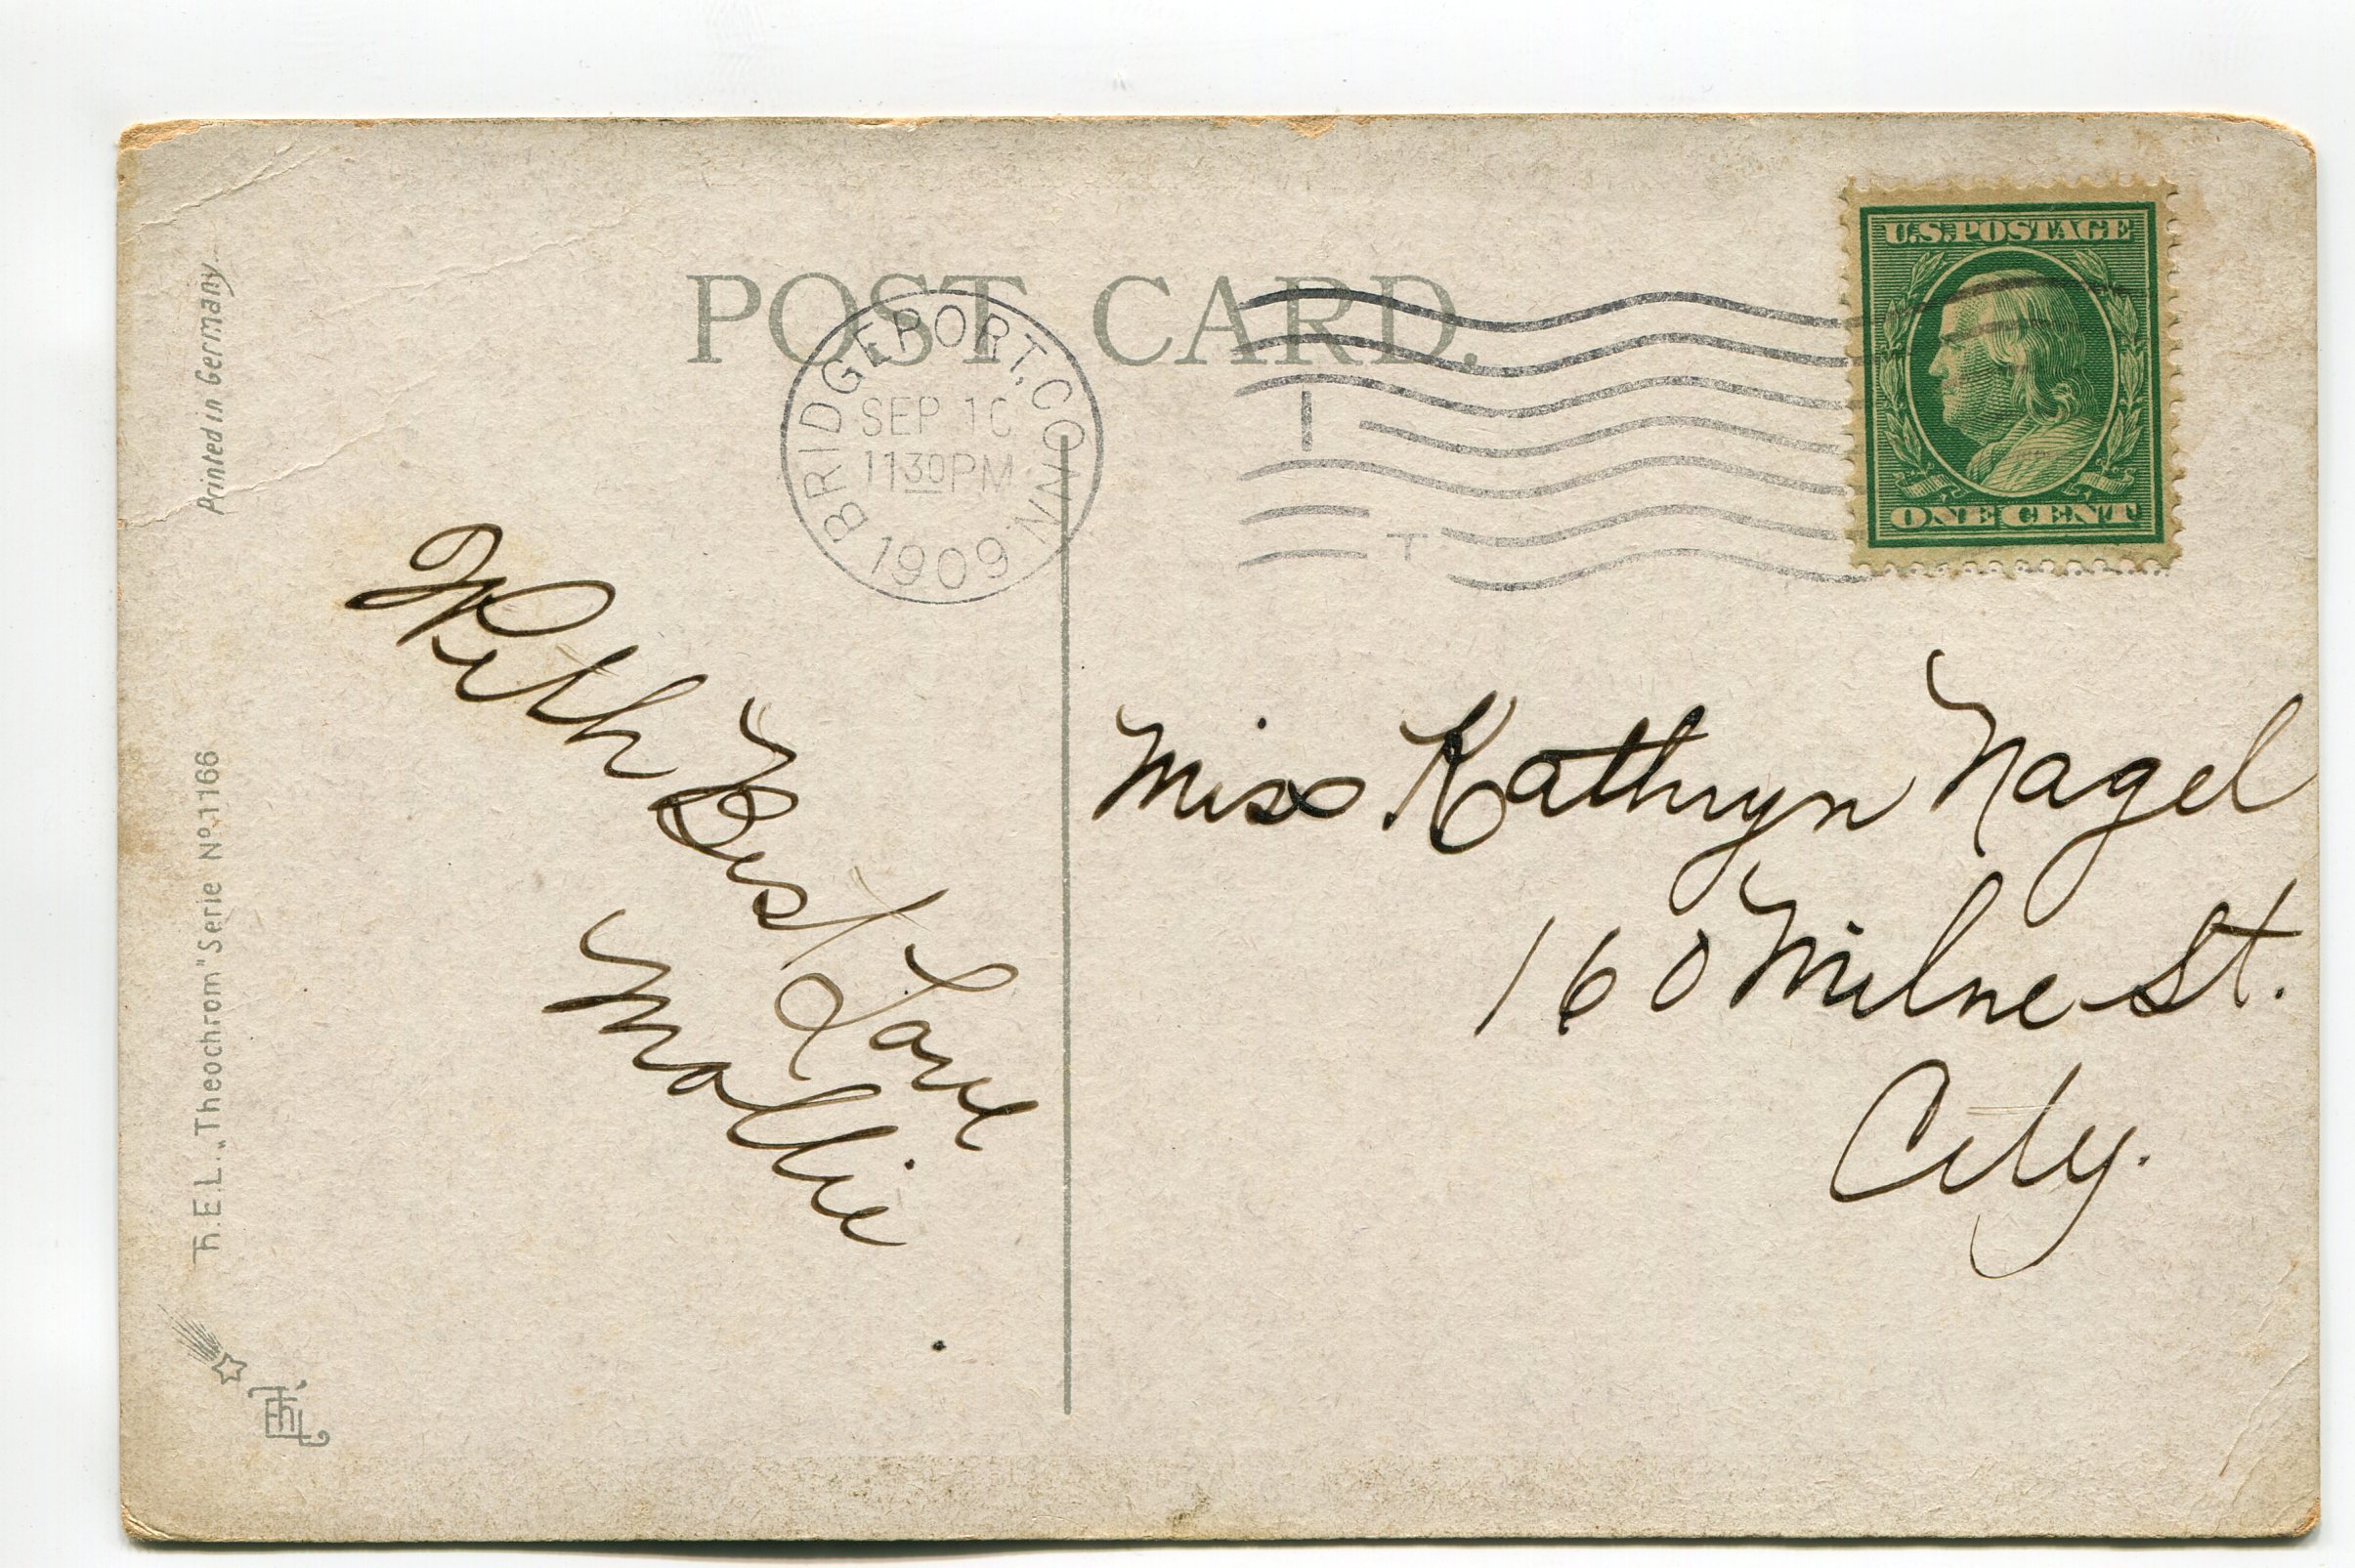 POST CARD.
BRIDGEPORT, CONN.
SEP 10
1130 PM
1909
U.S. POSTAGE
ONE CENT
Printed in Germany
Th.E.L. „Theochrom" Serie Nº 1166
With Best Love
Mollie
Miss Kathryn Nagel
160 Milne St.
City.